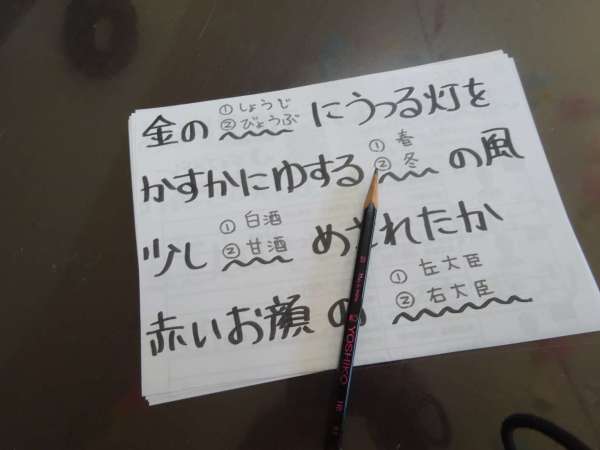 金の ①しょうじ ②びょうぶ にうつる灯を
かすかにゆする ①春 ②冬 の風
少し ①白酒 ②甘酒 めされたか
赤いお顔の ①左大臣 ②右大臣
YOSHIKO